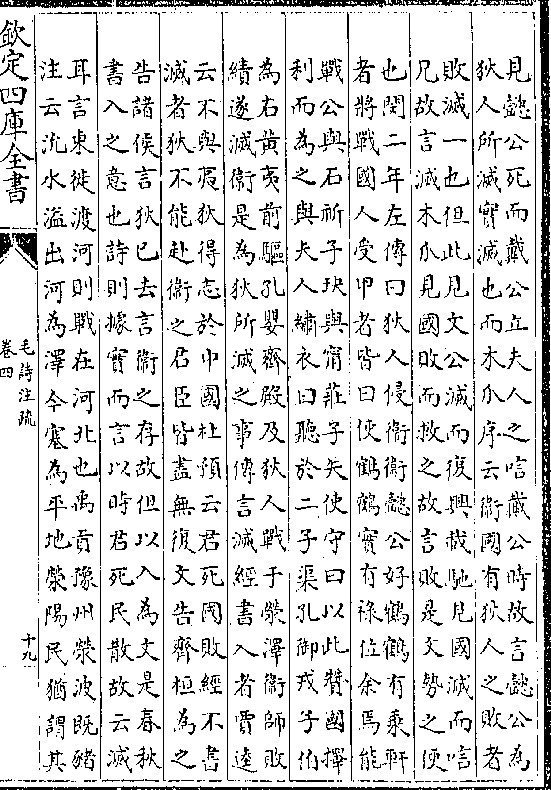 見懿公死而戴公立夫人之唁戴公時故言懿公為
狄人所滅實滅也而木瓜序云衛國有狄人之敗者
敗滅一也但此見文公滅而復興載馳見國滅而唁
兄故言滅木瓜見國敗而救之故言敗是文勢之便
也閔二年左傳曰狄人侵衛衛懿公好鶴鶴有乘軒
者將戰國人受甲者皆曰使鶴鶴實有祿位余焉能
戰公與石祈子玦與甯莊子矢使守曰以此贊國擇
利而為之與夫人繡衣曰聽於二子渠孔御戎子伯
為右黃夷前驅孔嬰齊殿及狄人戰于熒澤衛師敗
績遂滅衛是為狄所滅之事傳言滅經書入者賈逵
云不與夷狄得志於中國杜預云君死國敗經不書
滅者狄不能赴衛之君臣皆盡無復文告齊桓為之
告諸侯言狄已去言衛之存故但以入為文是春秋
書入之意也詩則據實而言以時君死民散故云滅
耳言東徙渡河則戰在河北也禹貢豫州熒波既豬
注云沇水溢出河為澤今塞為平地熒陽民猶謂其
欽定四庫全書
毛詩注疏
卷四
十九